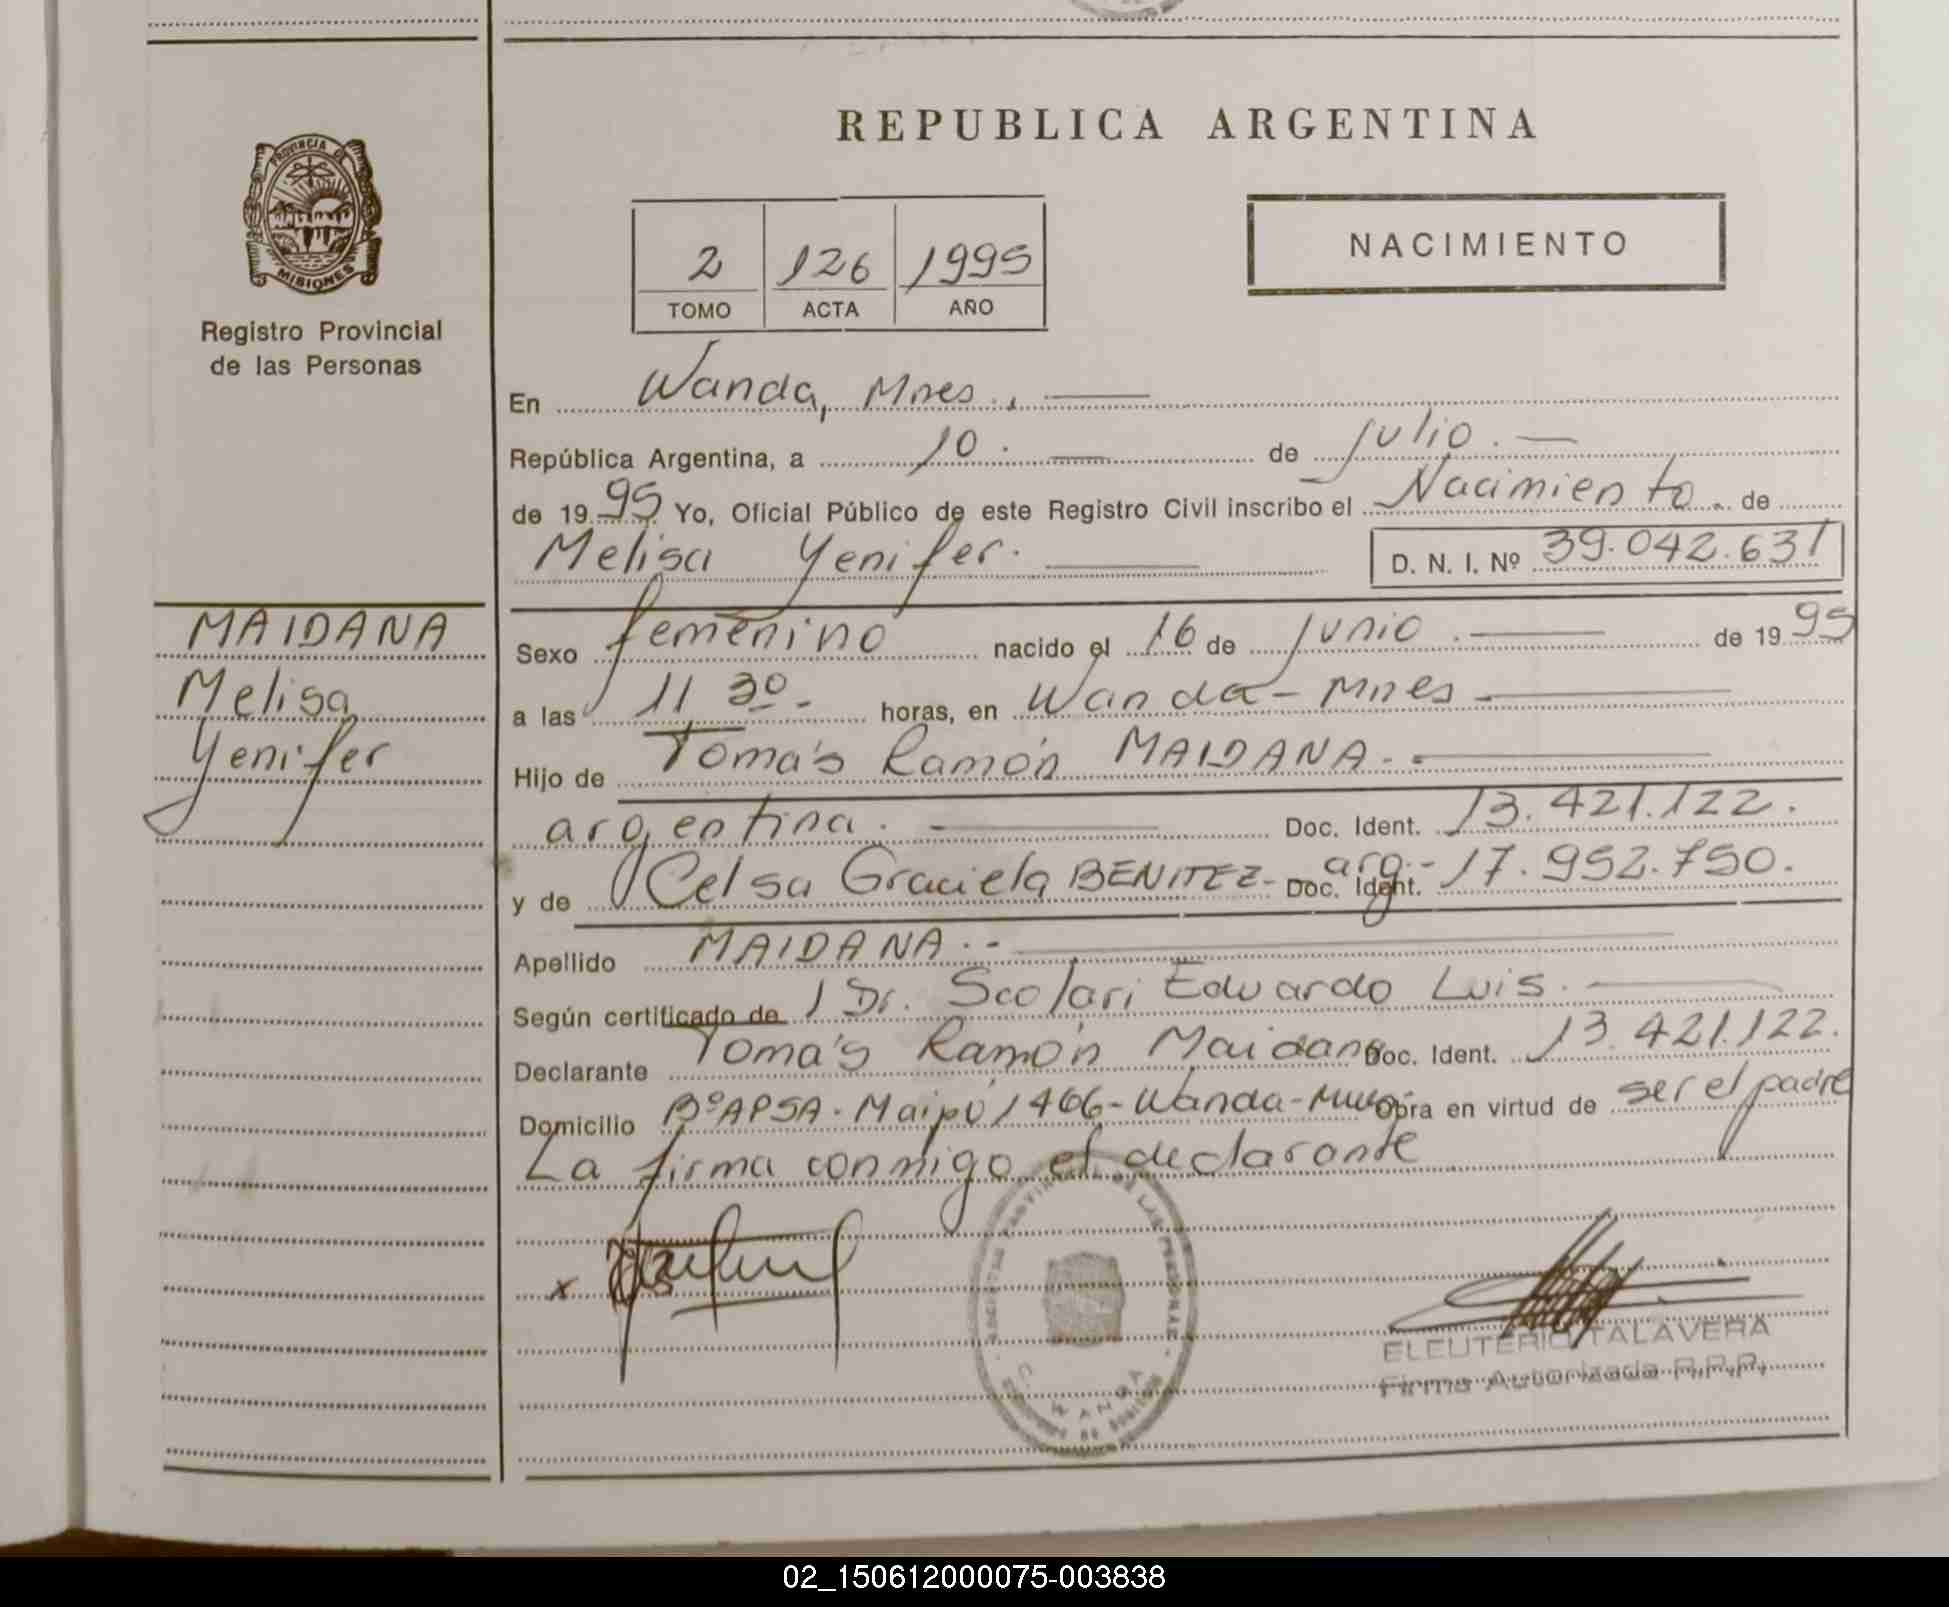 REPUBLICA ARGENTINA
PROVINCIA DE
MISIONES
Registro Provincial
de las Personas
2 126 1995
TOMO ACTA AÑO
NACIMIENTO
En Wanda, Mnes.,
República Argentina, a 10. de julio.
de 1995 Yo, Oficial Público de este Registro Civil inscribo el Nacimiento. de
Melisa Yenifer. D. N. I. Nº 39.042.631
MAIDANA
Melisa
Yenifer
Sexo femenino nacido el 16 de junio. de 1995
a las 11 30.- horas, en Wanda - Mnes -
Hijo de Tomás Ramón MAIDANA.-
argentina. Doc. Ident. 13.421.122.
y de Celsa Graciela BENITEZ- arg.- Doc. Ident. 17.952.750.
Apellido MAIDANA.-
Según certificado de Dr. Scolari Eduardo Luis.
Declarante Tomás Ramón Maidana Doc. Ident. 13.421.122.
Domicilio Bº APSA - Maipú 1466 - Wanda - Mnes Obra en virtud de ser el padre
La firma conmigo el declarante
x
WANDA
ELEUTERIO TALAVERA
Firma Autorizada R.P.P.
02_150612000075-003838